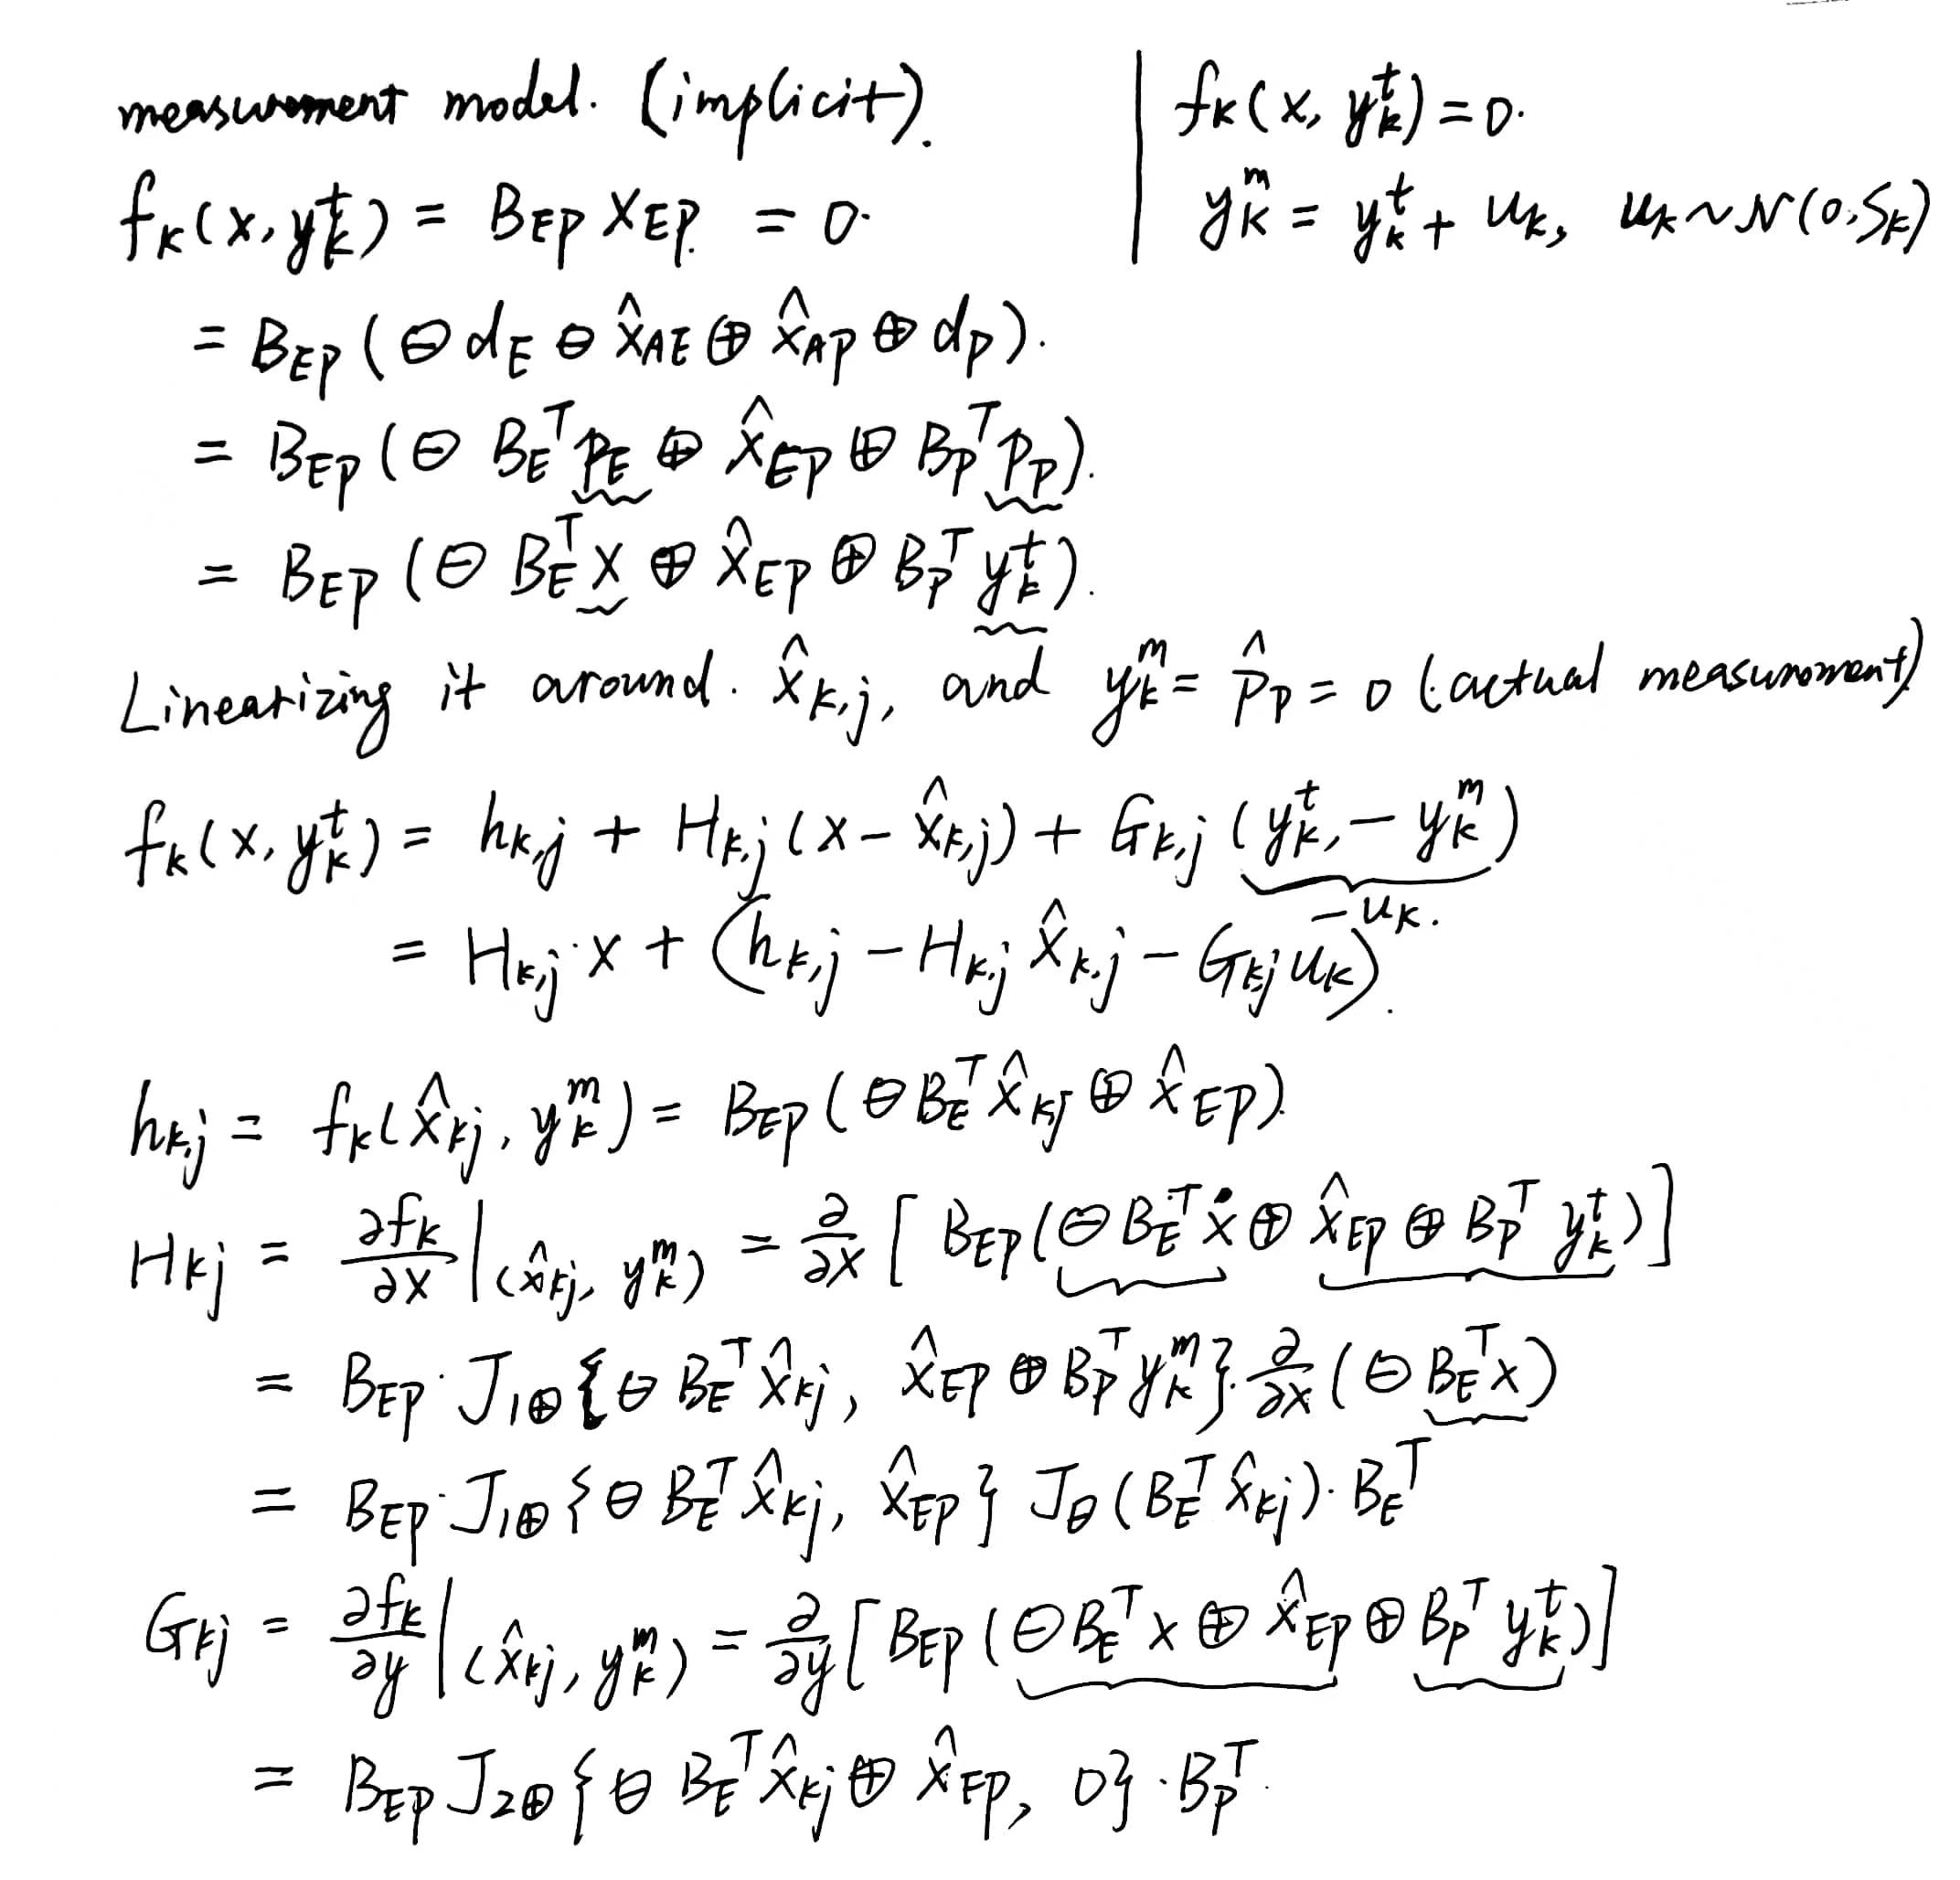 measurement model. (implicit).
f_k(x, y_k^t) = 0.
y_k^m = y_k^t + u_k, u_k ~ N(0, S_k)
f_k(x, y_k^t) = B_EP x_EP. = 0.
= B_EP (⊖ d_E ⊖ x̂_AE ⊕ x̂_AP ⊕ d_P).
= B_EP (⊖ B_E^T p_E ⊕ x̂_EP ⊕ B_P^T p_P).
= B_EP (⊖ B_E^T x ⊕ x̂_EP ⊕ B_P^T y_k^t).
Linearizing it around. x̂_k,j, and y_k^m = p̂_P = 0 (actual measurement)
f_k(x, y_k^t) = h_k,j + H_k,j (x - x̂_k,j) + G_k,j (y_k^t - y_k^m)
-u_k.
= H_k,j · x + (h_k,j - H_k,j x̂_k,j - G_kj u_k).
h_k,j = f_k(x̂_kj, y_k^m) = B_EP (⊖ B_E^T x̂_kj ⊕ x̂_EP)
H_kj = ∂f_k/∂x |(x̂_kj, y_k^m) = ∂/∂x [B_EP (⊖ B_E^T x ⊕ x̂_EP ⊕ B_P^T y_k^t)]
= B_EP · J_1⊕ {⊖ B_E^T x̂_kj, x̂_EP ⊕ B_P^T y_k^m} · ∂/∂x (⊖ B_E^T x)
= B_EP · J_1⊕ {⊖ B_E^T x̂_kj, x̂_EP} J_⊖ (B_E^T x̂_kj) · B_E^T
G_kj = ∂f_k/∂y |(x̂_kj, y_k^m) = ∂/∂y [B_EP (⊖ B_E^T x ⊕ x̂_EP ⊕ B_P^T y_k^t)]
= B_EP J_2⊕ {⊖ B_E^T x̂_kj ⊕ x̂_EP, 0} · B_P^T.